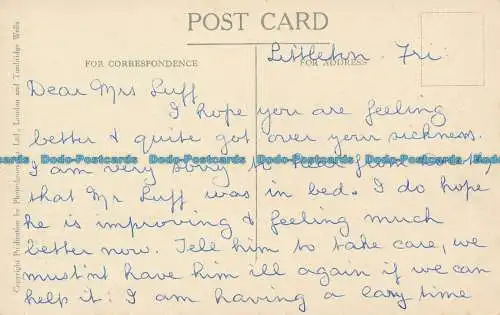 POST CARD
FOR CORRESPONDENCE
FOR ADDRESS
Littleton. Fri.
Dear Mrs Luff
I hope you are feeling
better & quite got over your sickness.
Dodo-Postcards Dodo-Postcards Dodo-Postcards Dodo-Postcards Dodo-Postcards
I am very sorry to hear from
that Mr Luff was in bed. I do hope
he is improving & feeling much
better now. Tell him to take care, we
must'nt have him ill again if we can
help it. I am having a lazy time
Copyright Publication by Photochrom Co. Ltd., London and Tunbridge Wells